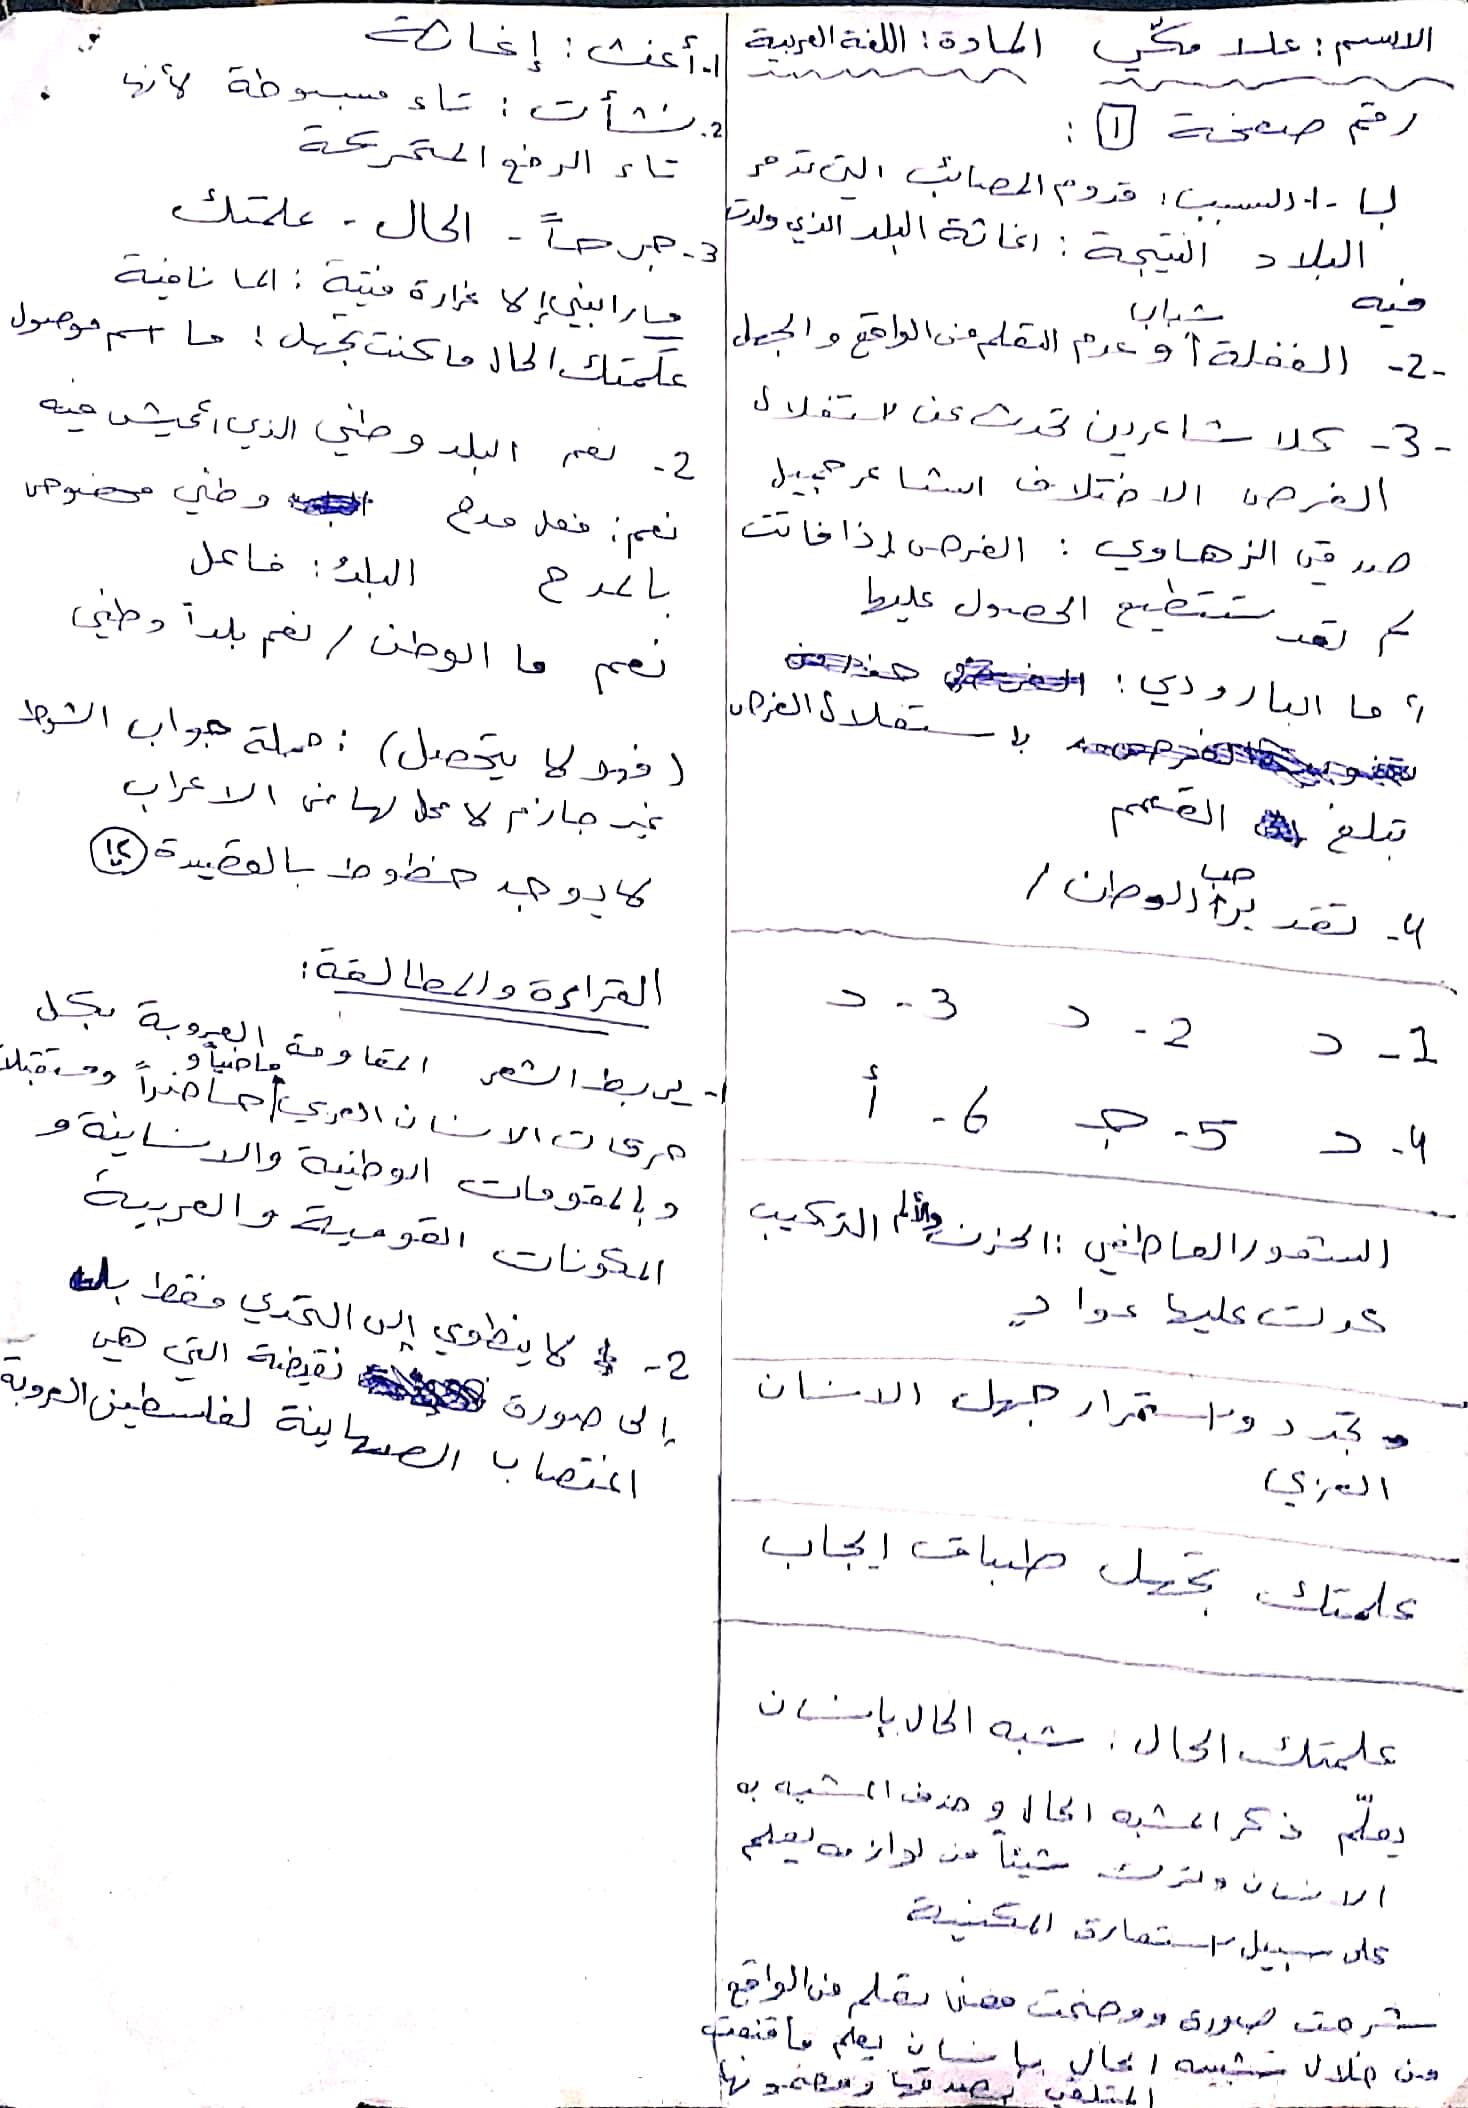 الاسم: علا مكّي المادة: اللغة العربية
رقم صفحة 1 :
ب) -1- السبب: قدوم المصائب التي تدمر
البلاد النتيجة: اغاثة البلد الذي ولدت
فيه
-2- الغفلة أو عدم التعلم من الواقع والجهل
شباب
-3- كلا شاعرين تحدث عن استغلال
الفرص الاختلاف الشاعر جميل
صدقي الزهاوي: الفرص إذا فاتت
لم تعد تستطيع الحصول عليها
أما البارودي:
باستغلال الفرص
تبلغ القمم
4- تقدير حب الوطن /
1- د 2- د 3- د
4- د 5- جـ 6- أ
الشعور العاطفي: الحزن والألم التركيب
عدت عليها عواد
تجدد واستمرار جهل الانسان
العربي
علمتك تجهل طباق ايجاب
علمتك الحال: شبه الحال بإنسان
يعلّم ذكر المشبه الحال و حذف المشبه به
الانسان وترك شيئاً من لوازمه يعلم
على سبيل استعارة المكنية
شرحت صورة ووضحت معنى تعلم من الواقع
من خلال تشبيه الحال بإنسان يعلم فأقنعت
المتلقي بصدقها ومضمونها
1- أغث: إغاثة
2- نشأت: تاء مبسوطة لأنها
تاء الرفع المتحركة
3- جرحاً - الحال - علمتك
ما رابني إلا غرارة فتية: الما نافية
علّمتك الحال ما كنت تجهل: ما اسم موصول
2- نعم البلد وطني الذي أعيش فيه
نعم: فعل مدح وطني مخصوص
بالمدح البلدُ: فاعل
نعم ما الوطن / نعم بلداً وطني
(فهو لا يتحصل): جملة جواب الشرط
غير جازم لا محل لها من الاعراب
لا يوجد خطوط بالقصيدة
القراءة والمطالعة:
1- يربط الشعر المقاومة العروبة بكل
حركات الانسان العربي ماضياً و حاضراً ومستقبلاً
وبالمقومات الوطنية والانسانية و
المكونات القومية والعربية
2- لا ينطوي إلى التحدي فقط بل
إلى صورة نقيضة التي هي
اغتصاب الصهاينة لفلسطين العروبة